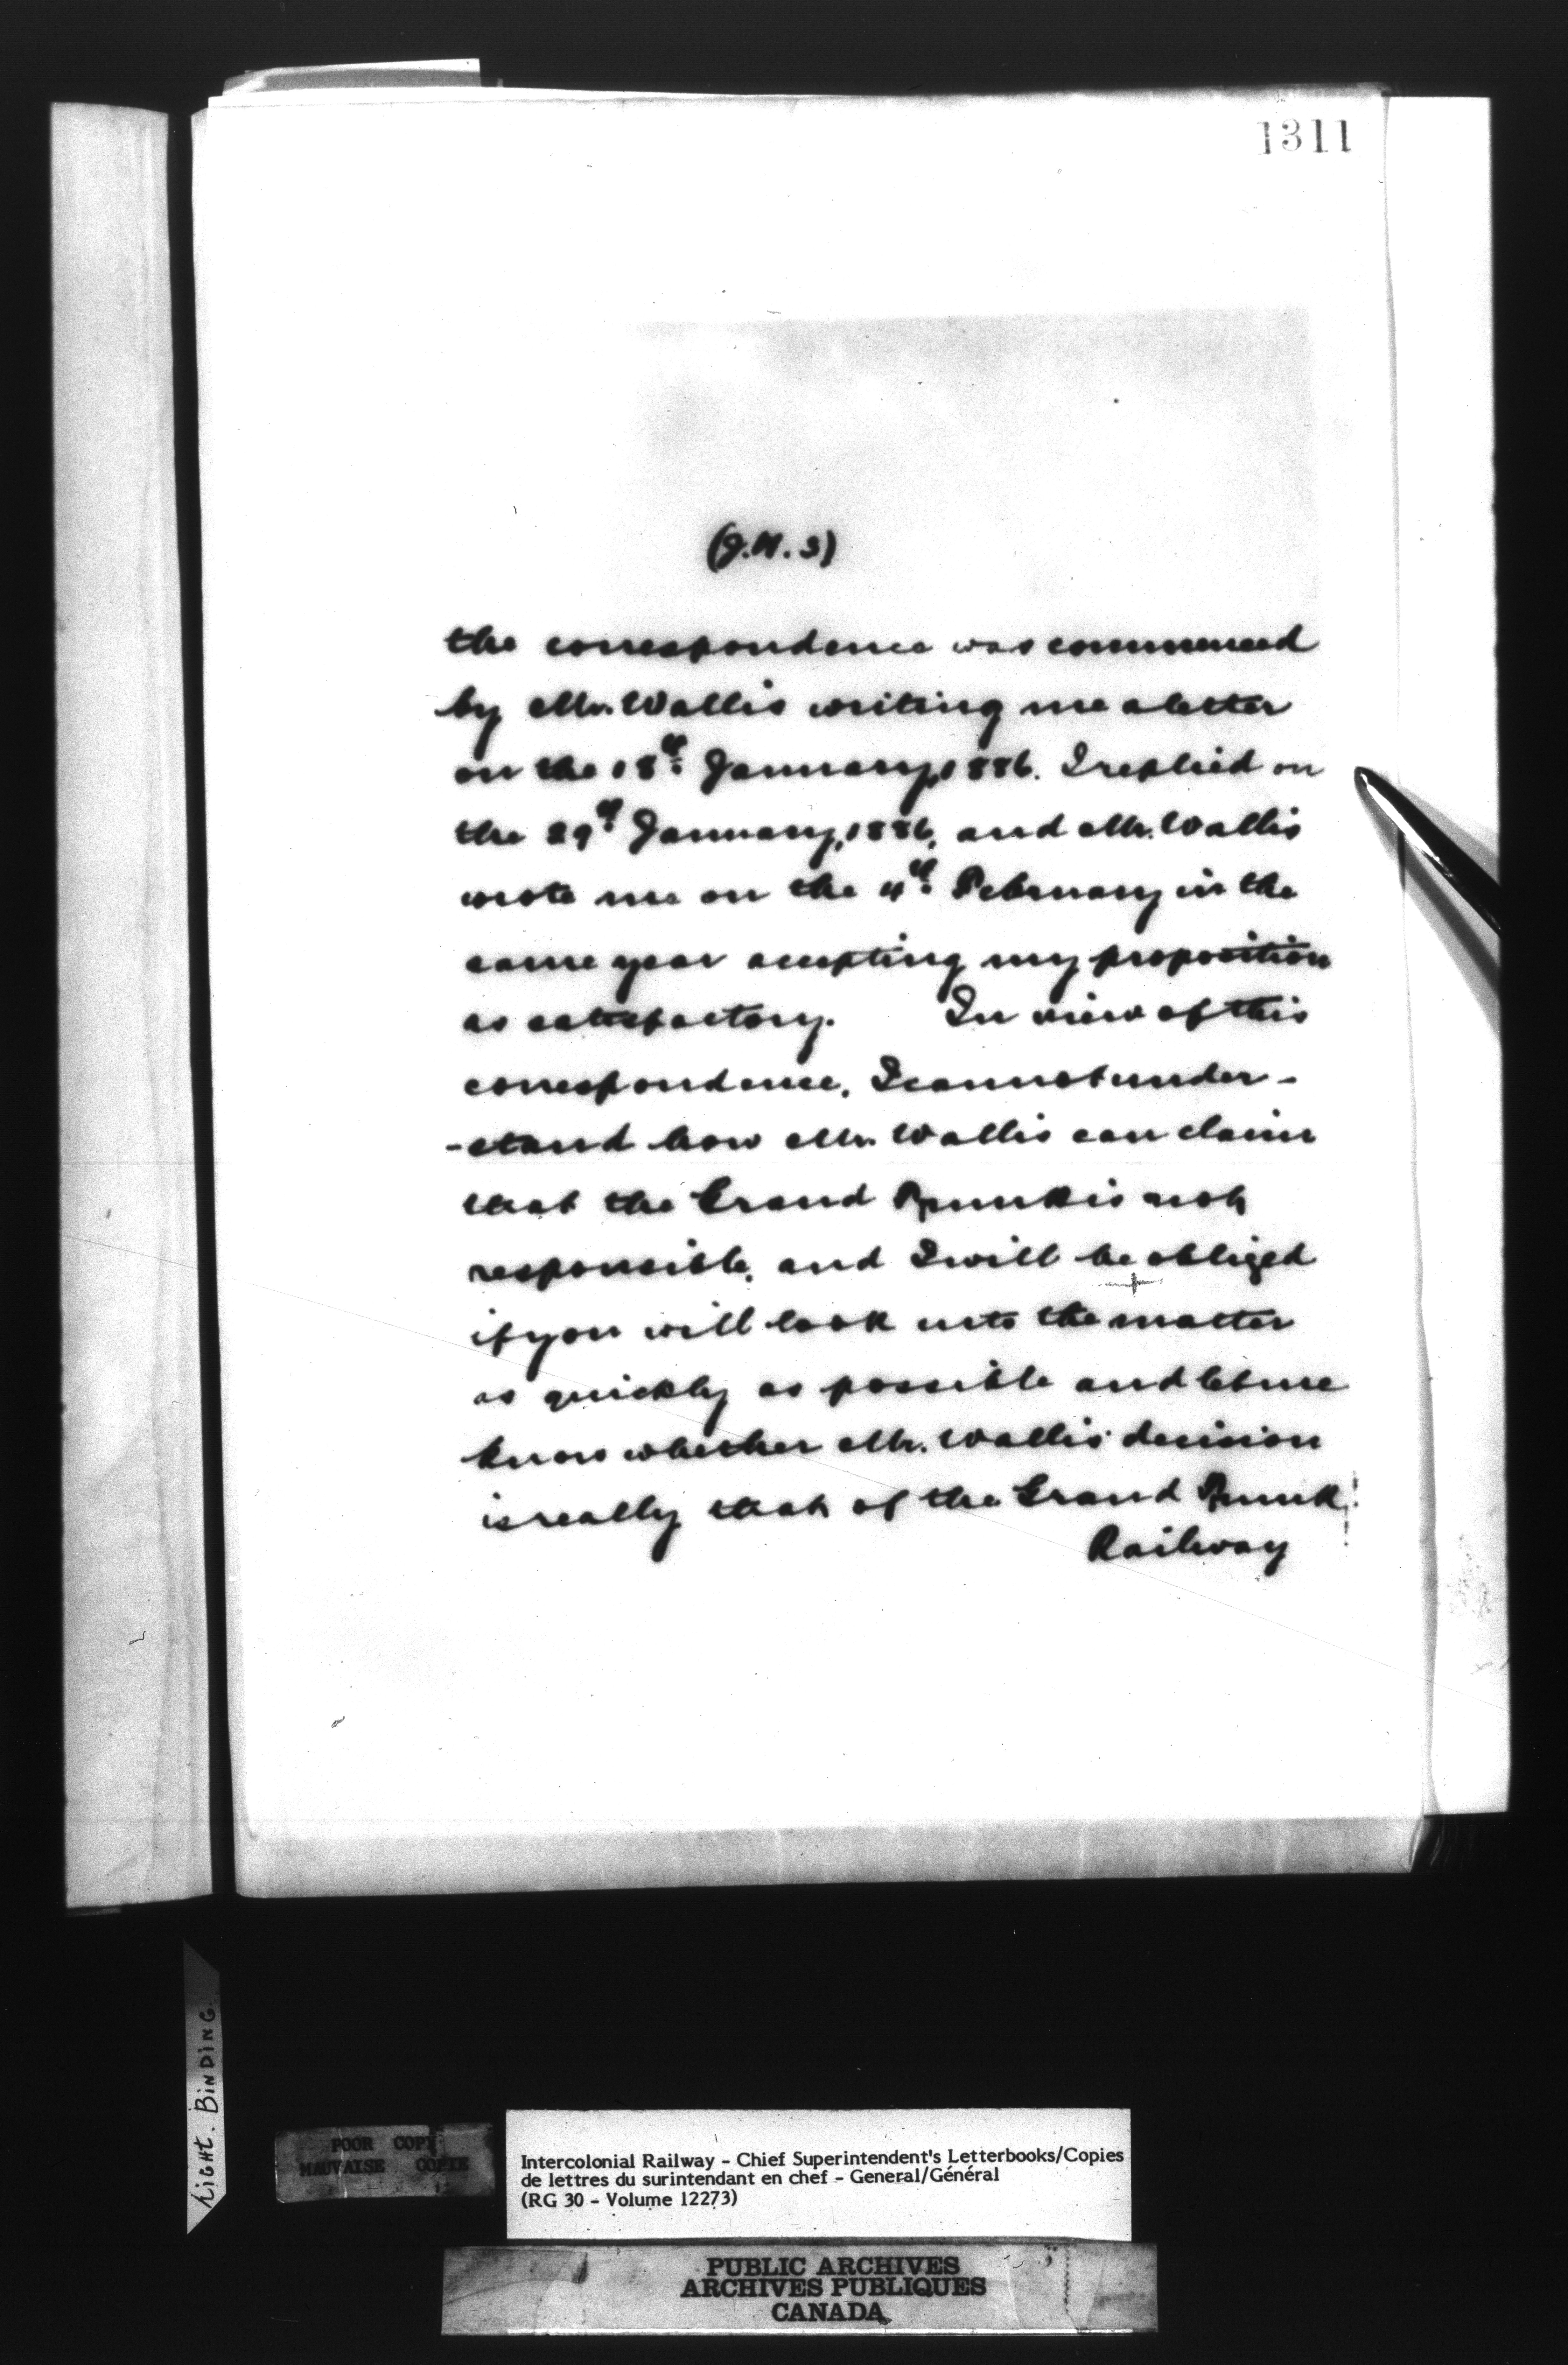 1311
(J.H.S)
the correspondence was commenced
by Mr. Wallis writing me a letter
on the 18th January, 1886. I replied on
the 29th January, 1886, and Mr. Wallis
wrote me on the 4th February in the
same year accepting my proposition
as satisfactory. In view of this
correspondence, I cannot under-
-stand how Mr. Wallis can claim
that the Grand Trunk is not
responsible, and I will be obliged
if you will look into the matter
as quickly as possible and let me
know whether Mr. Wallis' decision
is really that of the Grand Trunk
Railway
Light. Binding.
POOR COPY
MAUVAISE COPIE
Intercolonial Railway - Chief Superintendent's Letterbooks/Copies
de lettres du surintendant en chef - General/Général
(RG 30 - Volume 12273)
PUBLIC ARCHIVES
ARCHIVES PUBLIQUES
CANADA